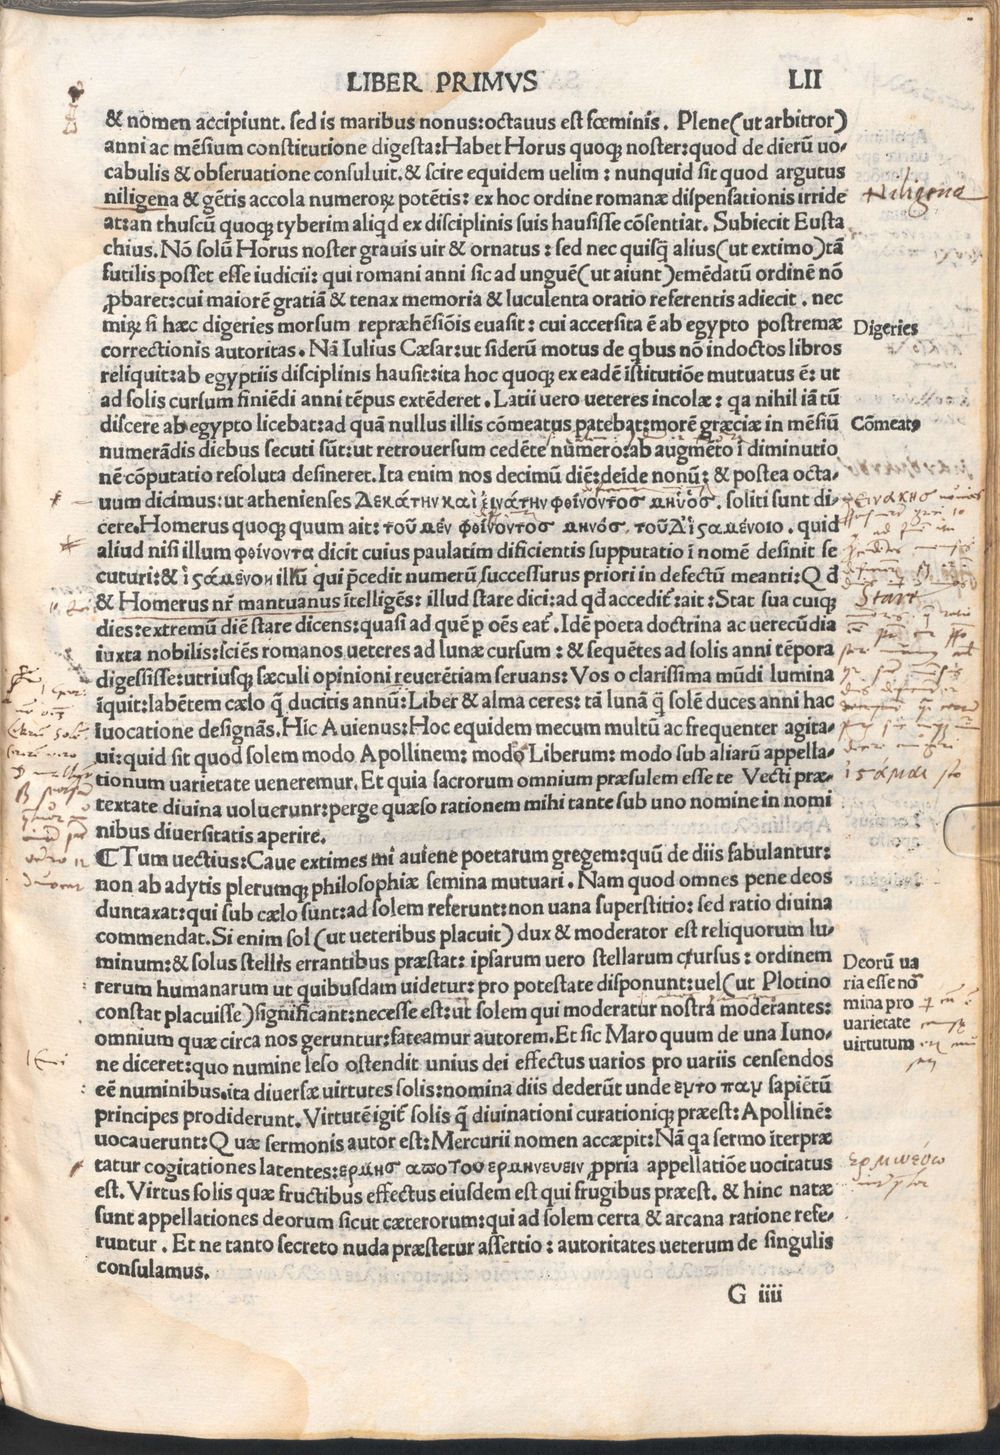 LIBER PRIMVS
LII
& nomen accipiunt. sed is maribus nonus:octauus est fœminis. Plene(ut arbitror)
anni ac mēsium constitutione digesta:Habet Horus quoqꝫ noster:quod de dierū uo-
cabulis & obseruatione consuluit.& scire equidem uelim : nunquid sit quod argutus
niligena & gētis accola numerorꝝ potētis: ex hoc ordine romanæ dispensationis irride
at:an thuscū quoqꝫ tyberim aliqd ex disciplinis suis hausisse cōsentiat. Subiecit Eusta
chius. Nō solū Horus noster grauis uir & ornatus : sed nec quisq̄ alius(ut extimo)tā
futilis posset esse iudicii: qui romani anni sic ad unguē(ut aiunt)emēdatū ordinē nō
ꝓbaret:cui maiorē gratiā & tenax memoria & luculenta oratio referentis adiecit . nec
mirꝝ si hæc digeries morsum repræhēsiōis euasit : cui accersita ē ab egypto postremæ
correctionis autoritas. Nā Iulius Cæsar:ut siderū motus de qbus nō indoctos libros
reliquit:ab egyptiis disciplinis hausit:ita hoc quoqꝫ ex eadē īstitutiōe mutuatus ē: ut
ad solis cursum finiēdi anni tēpus extēderet . Latii uero ueteres incolæ : qa nihil iā tū
discere ab egypto licebat:ad quā nullus illis cōmeatus patebat:morē græciæ in mēsiū
numerādis diebus secuti sūt:ut retrouersum cedēte nūmero:ab augmēto ī diminutio
nē cōputatio resoluta desineret. Ita enim nos decimū diē:deīde nonū: & postea octa-
uum dicimus:ut athenienses Δεκάτην καὶ ἐινάτην φθίνοντος μηνὸς. soliti sunt di-
cere.Homerus quoqꝫ quum ait: τοῦ μὲν φθίνοντος μηνός, τοῦ Δ'ἱςαμένοιο . quid
aliud nisi illum φθίνοντα dicit cuius paulatim dificientis supputatio ī nomē desinit se
cuturi:& ἱςάμενον illū qui p̄cedit numerū successurus priori in defectū meanti:Q đ
& Homerus nr̄ mantuanus ītelligēs: illud stare dici:ad qđ accedit:ait :Stat sua cuiqꝫ
dies:extremū diē stare dicens:quasi ad quē ꝑ oēs eat. Idē poeta doctrina ac uerecūdia
iuxta nobilis:sciēs romanos ueteres ad lunæ cursum : & sequētes ad solis anni tēpora
digessisse:utriusqꝫ sæculi opinioni reuerētiam seruans: Vos o clarissima mūdi lumina
īquit:labētem cælo q̄ ducitis annū: Liber & alma ceres: tā lunā q̄ solē duces anni hac
īuocatione designās. Hic Auienus: Hoc equidem mecum multū ac frequenter agita-
ui:quid sit quod solem modo Apollinem: modo Liberum: modo sub aliarū appella-
tionum uarietate ueneremur. Et quia sacrorum omnium præsulem esse te Vecti præ-
textate diuina uoluerunt:perge quæso rationem mihi tante sub uno nomine in nomi
nibus diuersitatis aperire.
¶Tum uectius:Caue extimes mi auiene poetarum gregem:quū de diis fabulantur:
non ab adytis plerumqꝫ philosophiæ semina mutuari . Nam quod omnes pene deos
duntaxat:qui sub cælo sunt:ad solem referunt:non uana superstitio: sed ratio diuina
commendat. Si enim sol (ut ueteribus placuit) dux & moderator est reliquorum lu-
minum:& solus stellis errantibus præstat: ipsarum uero stellarum cursus : ordinem
rerum humanarum ut quibusdam uidetur: pro potestate disponunt:uel(ut Plotino
constat placuisse)significant:necesse est:ut solem qui moderatur nostra moderantes:
omnium quæ circa nos geruntur:fateamur autorem.Et sic Maro quum de una Iuno-
ne diceret:quo numine leso ostendit unius dei effectus uarios pro uariis censendos
eē numinibus.ita diuersæ uirtutes solis:nomina diis dederūt unde εντο παν sapiētū
principes prodiderunt. Virtutē igit solis q̄ diuinationi curationiqꝫ præest: Apollinē:
uocauerunt:Quæ sermonis autor est:Mercurii nomen accæpit:Nā qa sermo īterpræ
tatur cogitationes latentes:ερμης απο του ερμηνευειν ꝓpria appellatiōe uocitatus
est. Virtus solis quæ fructibus effectus eiusdem est qui frugibus præest. & hinc natæ
sunt appellationes deorum sicut cæterorum:qui ad solem certa & arcana ratione refe-
runtur . Et ne tanto secreto nuda præstetur assertio : autoritates ueterum de singulis
consulamus.
G iiii
Niligena
Digeries
Cōmeatꝰ
Start
ἱςάμαι sto
Deorū ua
ria esse nō
mina pro
uarietate
uirtutum